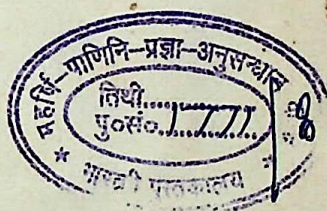 महर्षि-पाणिनि-प्रज्ञा-अनुसन्धान
तिथी..................
पु०सं०...1771.........
पुस्तकालय